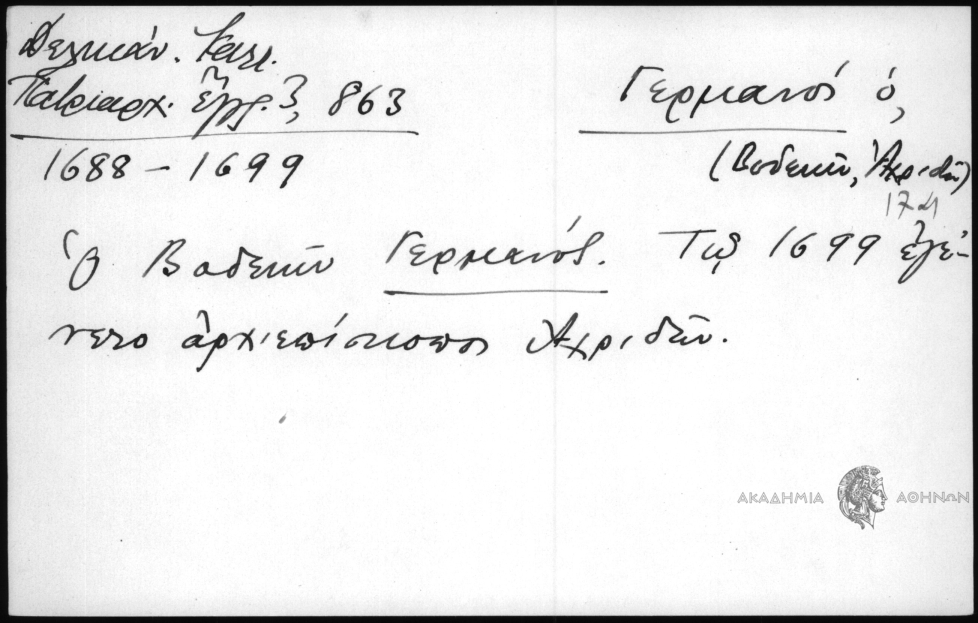 Δελικάν. Καλ.
Πατριαρχ. ἔγγρ. 3, 863
Γερμανός ὁ,
1688 – 1699
(Βοδενῶν, Ἀχριδῶν)
Ὁ Βοδενῶν Γερμανός. Τῷ 1699 ἐγέ-
νετο ἀρχιεπίσκοπος Ἀχριδῶν.
ΑΚΑΔΗΜΙΑ ΑΘΗΝΩΝ